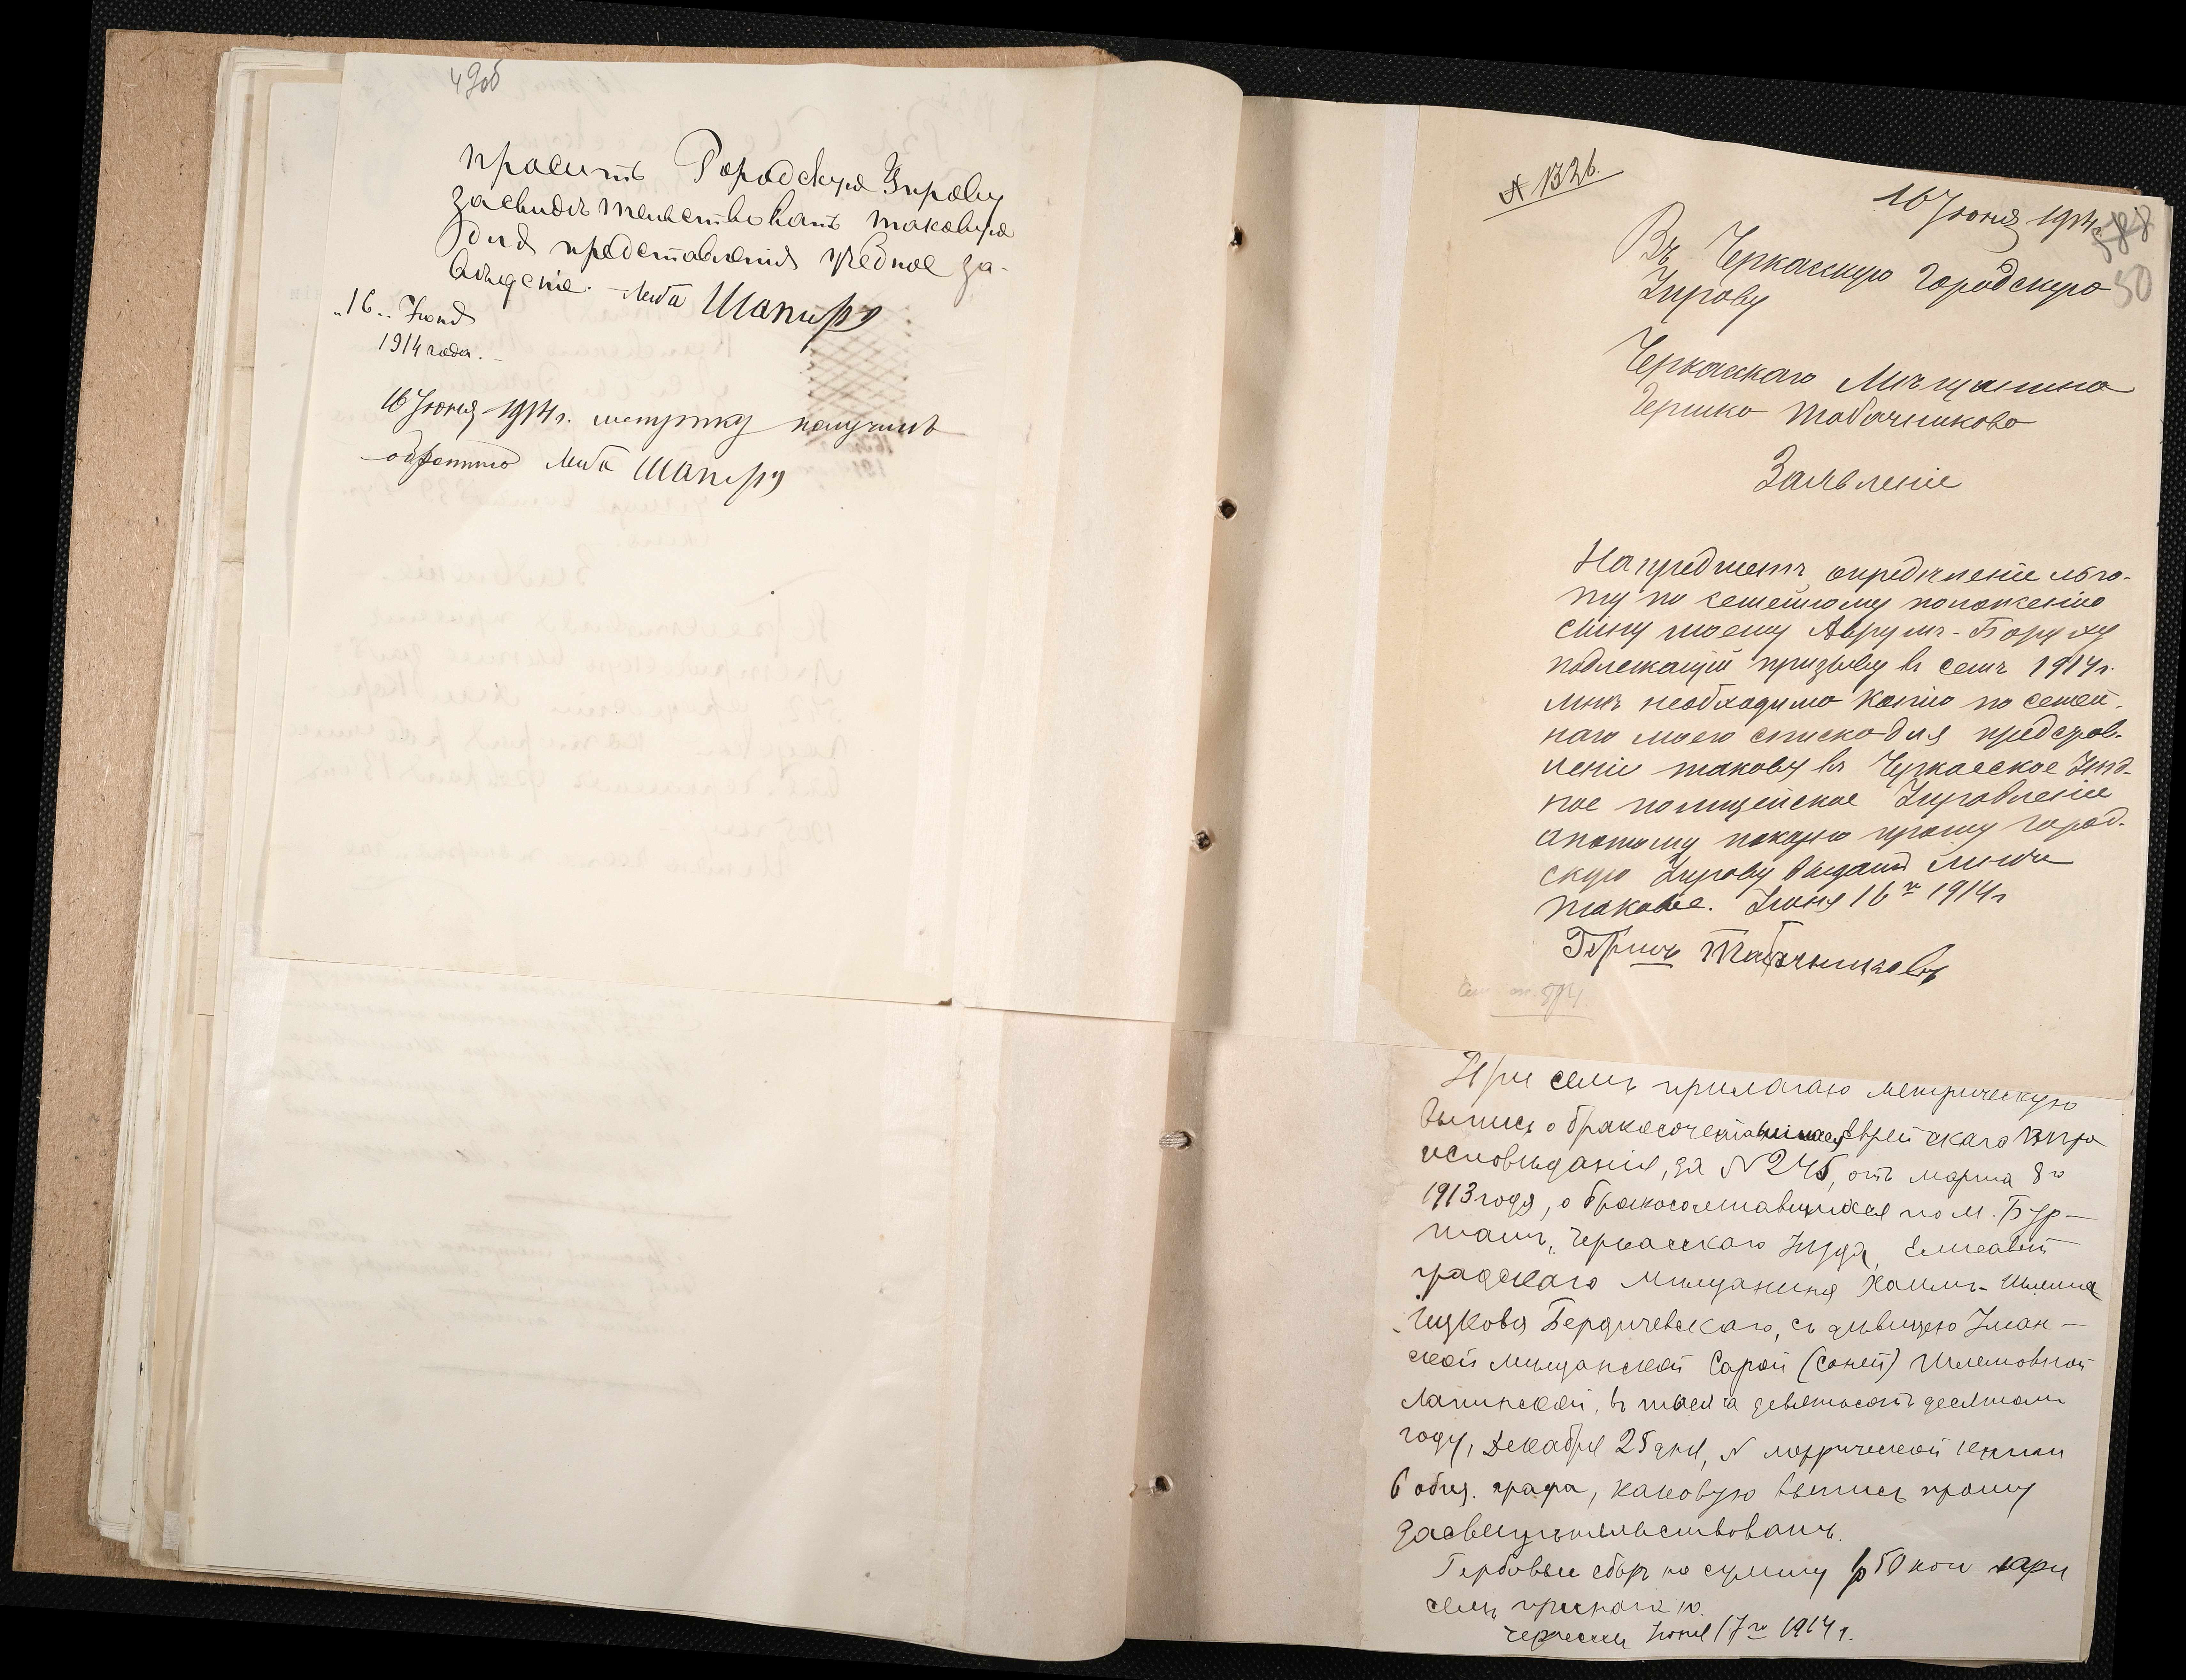 49об
просить Городскую Управу
засвидѣтельствовать таковую
для представленія учебное за-
веденіе. Лейба Шапиро
"16" Іюня
1914 года.
16 Іюня 1914 г. метрику получилъ
обратно Лейба Шапиро
№ 1326.
16 Іюня 1914 г.
588
50
Въ Черкасскую Городскую
Управу
Черкасскаго Мѣщанина
Гершко Табачникова
Заявленіе
На предметъ опредѣленіе льго-
ту по семейному положенію
сыну моему Аврумъ-Боруху
подлежащій призыву въ семъ 1914 г.
мнѣ необходимо копію по семей-
наго моего списка для представ-
леніе такову въ Черкасское Уѣзд-
ное полицейское Управленіе
а потому покорно прошу город-
скую Управу выдать мнѣ
таковые. Іюня 16 го 1914 г
Гершъ Табачниковъ
При семъ прилагаю метрическую
выпись о бракосочетавшихся Еврейскаго вѣро
исповѣданія, за № 245, отъ марта 8 го
1913 года, о бракосочетавшихся по м. Бур-
тамъ, Черкасскаго Уѣзда, Елисавет
градскаго мѣщанина Хаимъ-Шлема
Ицкова Бердичевскаго, съ дѣвицею Уман-
ской мѣщанской Сарой (Соней) Шлемовной
Лапинской, въ тысяча девятьсотъ десятомъ
году, Декабря 25 дня, № метрической книги
6 общ. графа, каковую выпись прошу
засвидѣтельствовать.
Гербовый сборъ на сумму 1 р 50 коп при
семъ прилагаю.
Черкассы Іюня 17 го 1914 г.